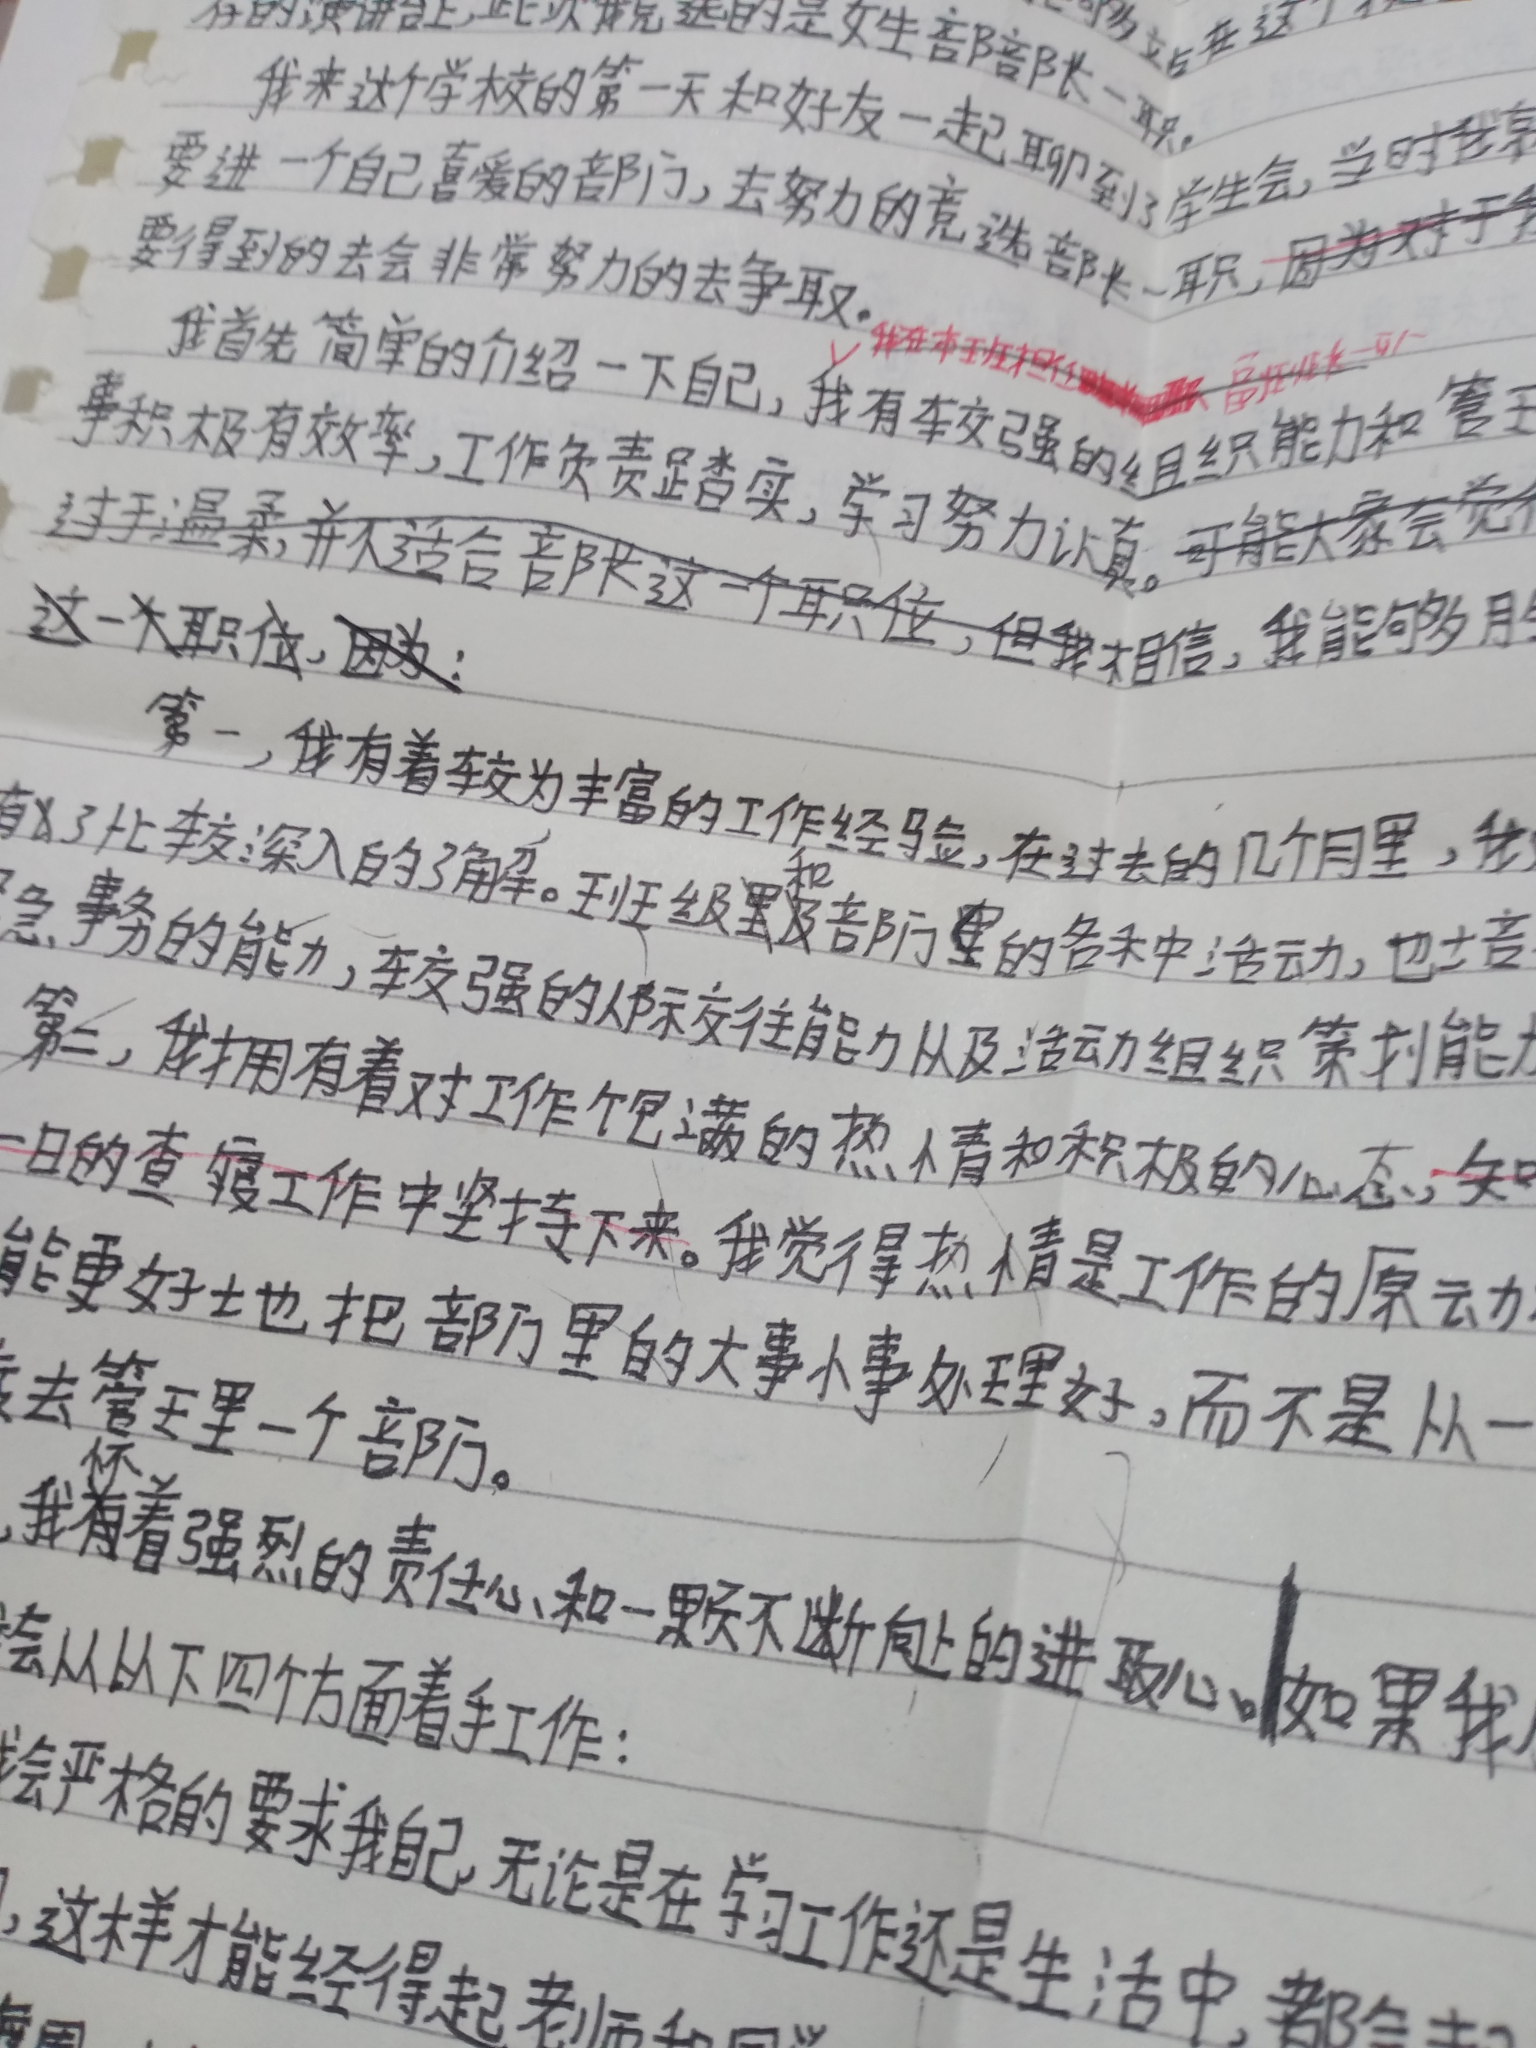 在的演讲台上,此次我竞选的是女生部部长一职。
我来这个学校的第一天和好友一起聊到了学生会,当时我就
要进一个自己喜爱的部门,去努力的竞选部长一职,因为对于
要得到的去会非常努力的去争取。
我在本班担任 副班长一职
我首先简单的介绍一下自己,我有较强的组织能力和管理
事积极有效率,工作负责踏实,学习努力认真。可能大家会觉得
过于温柔,并不适合部长这一个职位,但我相信,我能够
这一大职位,因为:
第一,我有着较为丰富的工作经验,在过去的几个月里,我
有了比较深入的了解。班级里和部门里的各种活动,也培
急事务的能力,较强的人际交往能力以及活动组织策划能力
第二,我拥有着对工作饱满的热情和积极的心态,
一日的查寝工作中坚持下来。我觉得热情是工作的原动力
能更好地把部门里的大事小事处理好,而不是从一
去管理一个部门。
,我怀着强烈的责任心和一颗不断向上的进取心。如果我
会从以下四个方面着手工作:
会严格的要求我自己,无论是在学习工作还是生活中,都会
,这样才能经得起老师和同学